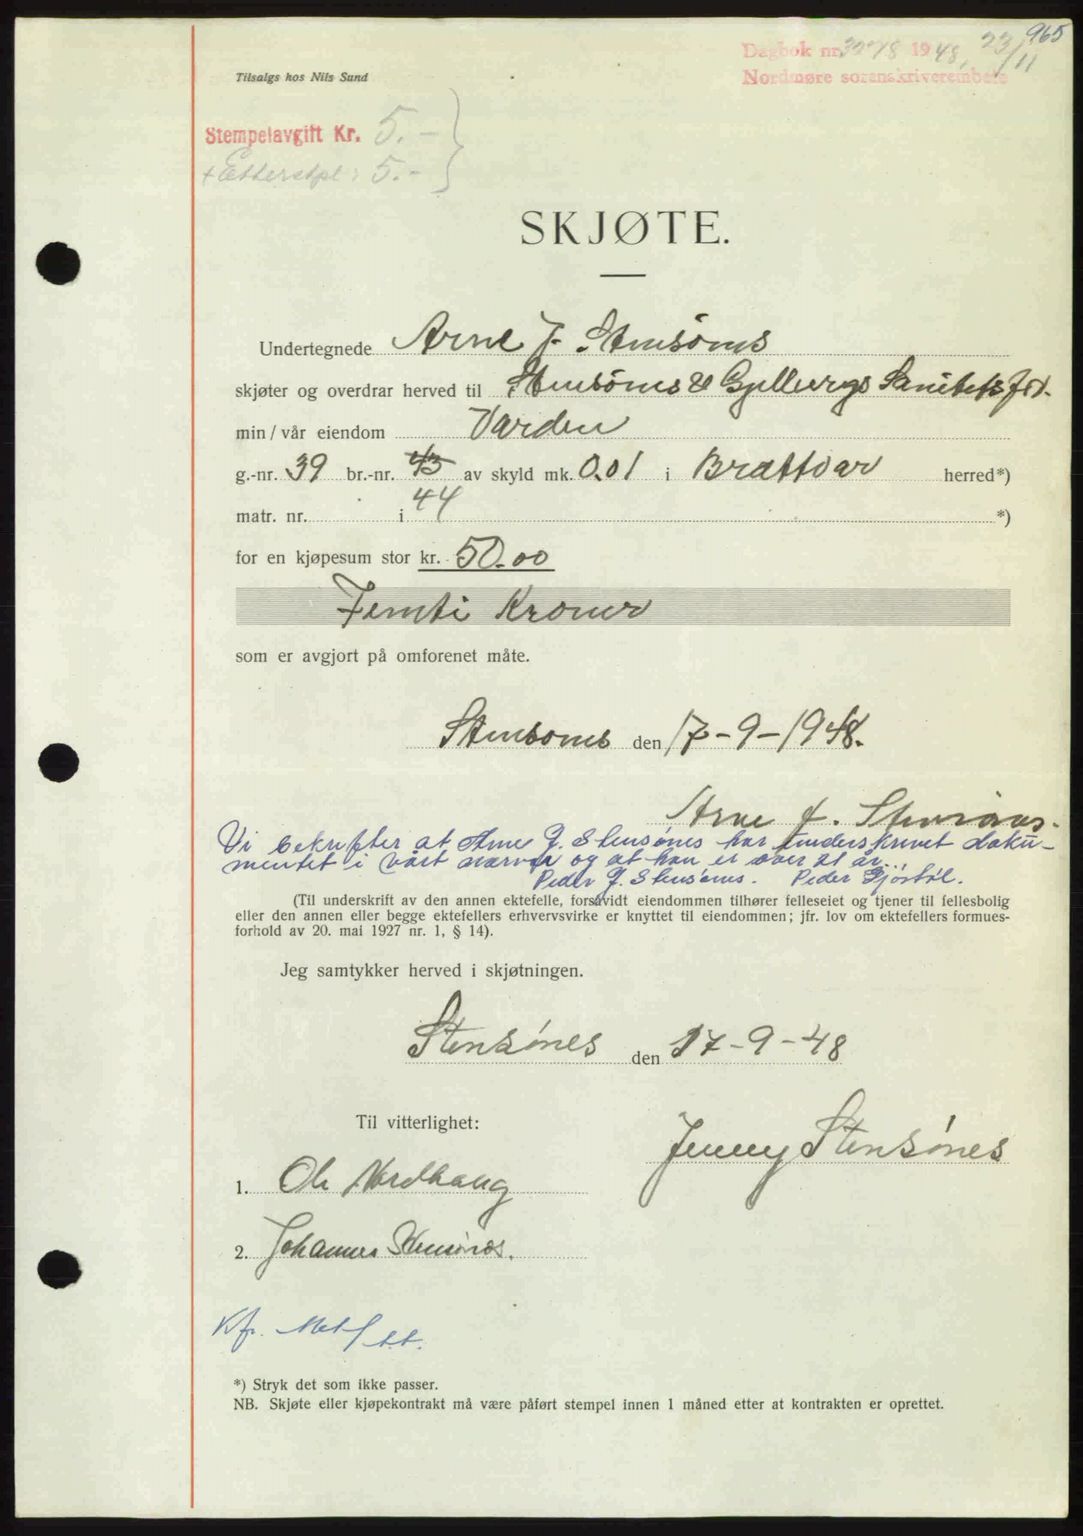 965
Dagbok nr. 3278 1948, 23/11
Nordmøre sorenskriverembete
Tilsalgs hos Nils Sund
Stempelavgift Kr. 5.-
+ Etterstpl: 5.-
SKJØTE.
Undertegnede Arne J. Stensönes
skjøter og overdrar herved til Stensönes & Gjelbergs Sanitetsfor.
min/vår eiendom Varden
g.-nr. 39 br.-nr. 43 av skyld mk. 0.01 i Brattvær herred*)
matr. nr. i 44 *)
for en kjøpesum stor kr. 50.00
Femti Kroner
som er avgjort på omforenet måte.
Stensönes den 17-9-1948.
Arne J. Stensönes.
Vi bekrefter at Arne J. Stensönes har underskrevet doku-
mentet i vårt nærvær og at han er over 21 år.
Peder J. Stensönes. Peder
(Til underskrift av den annen ektefelle, forsåvidt eiendommen tilhører felleseiet og tjener til fellesbolig
eller den annen eller begge ektefellers erhvervsvirke er knyttet til eiendommen; jfr. lov om ektefellers formues-
forhold av 20. mai 1927 nr. 1, § 14).
Jeg samtykker herved i skjøtningen.
Stensönes den 17-9-48
Til vitterlighet:
Jenny Stensönes
1. Ole Nordhaug
2. Johannes Stensönes.
Kfr.
*) Stryk det som ikke passer.
NB. Skjøte eller kjøpekontrakt må være påført stempel innen 1 måned etter at kontrakten er oprettet.